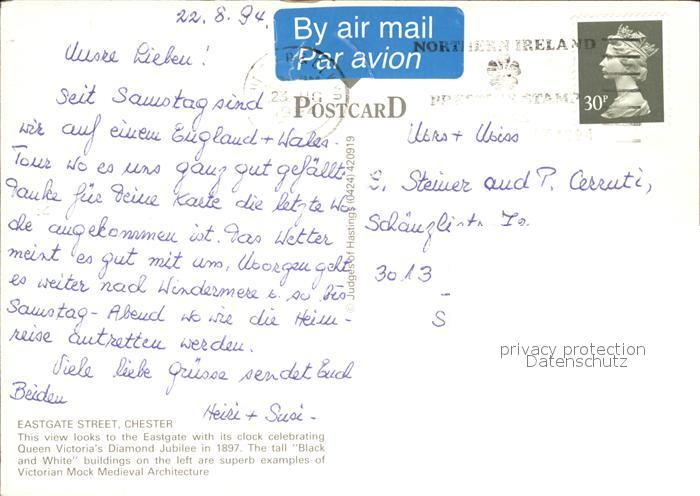 22.8.94.
By air mail
Par avion
NORTHERN IRELAND
30P
Unsre Lieben!
POSTCARD
Seit Samstag sind
wir auf einem England + Wales-
Tour wo es uns ganz gut gefällt.
Danke für Deine Karte die letzte Wo
che angekommen ist. Das Wetter
meint es gut mit uns, Morgen geht
es weiter nach Windermere u. so bis
Samstag-Abend wo wir die Heim-
reise antretten werden.
Viele liebe Grüsse sendet Euch
Beiden
Heiri + Susi-
© Judges of Hastings (0424) 420919
Mrs + Miss
S. Steiner and P. Cerruti,
Schänzlistr.
3013
S
privacy protection
Datenschutz
EASTGATE STREET, CHESTER
This view looks to the Eastgate with its clock celebrating
Queen Victoria's Diamond Jubilee in 1897. The tall "Black
and White" buildings on the left are superb examples of
Victorian Mock Medieval Architecture